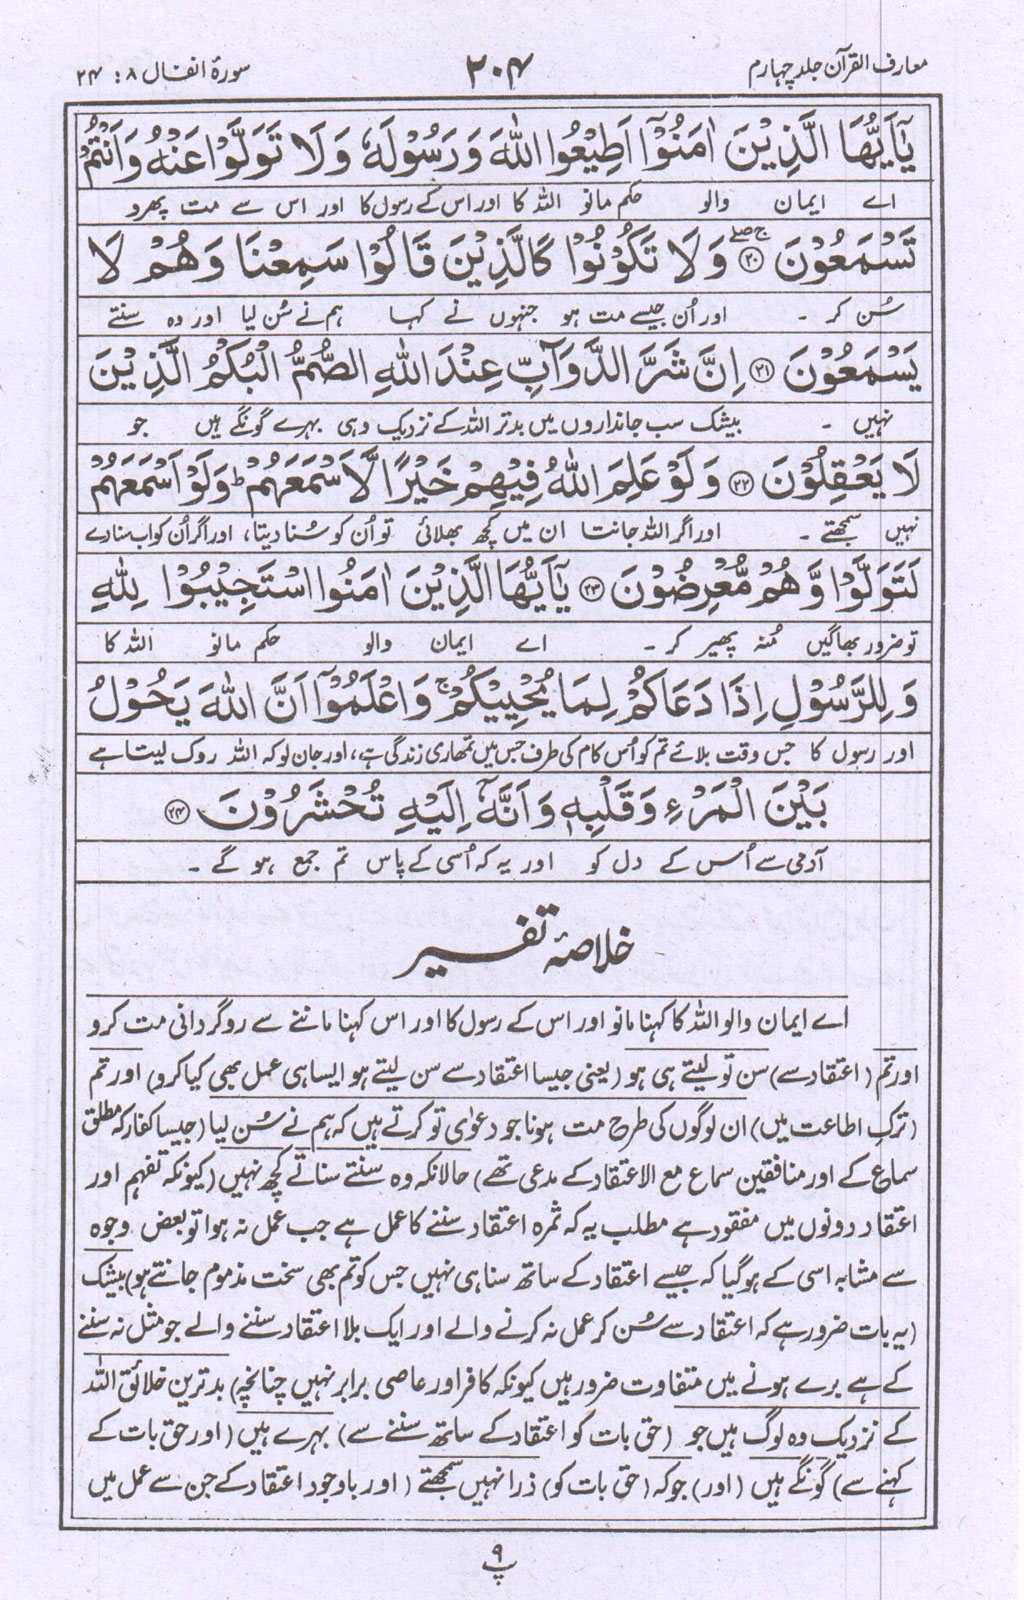 معارف القرآن جلد چہارم
۲۰۴
سورۂ انفال ۸ : ۲۴
يٰۤاَيُّهَا الَّذِيْنَ اٰمَنُوْۤا اَطِيْعُوا اللّٰهَ وَرَسُوْلَهٗ وَلَا تَوَلَّوْا عَنْهُ وَاَنْتُمْ
اے ایمان والو حکم مانو اللہ کا اور اس کے رسول کا اور اس سے مت پھرو
تَسْمَعُوْنَ ۚۖ ﴿۲۰﴾ وَلَا تَكُوْنُوْا كَالَّذِيْنَ قَالُوْا سَمِعْنَا وَهُمْ لَا
سُن کر ۔ اور اُن جیسے مت ہو جنہوں نے کہا ہم نے سُن لیا اور وہ سنتے
يَسْمَعُوْنَ ﴿۲۱﴾ اِنَّ شَرَّ الدَّوَآبِّ عِنْدَ اللّٰهِ الصُّمُّ الْبُكْمُ الَّذِيْنَ
نہیں ۔ بیشک سب جانداروں میں بدتر اللہ کے نزدیک وہی بہرے گونگے ہیں جو
لَا يَعْقِلُوْنَ ﴿۲۲﴾ وَلَوْ عَلِمَ اللّٰهُ فِيْهِمْ خَيْرًا لَّاَسْمَعَهُمْ ؕ وَلَوْ اَسْمَعَهُمْ
نہیں سمجھتے ۔ اور اگر اللہ جانتا ان میں کچھ بھلائی تو اُن کو سُنا دیتا، اور اگر اُن کو اب سنا دے
لَتَوَلَّوْا وَّهُمْ مُّعْرِضُوْنَ ﴿۲۳﴾ يٰۤاَيُّهَا الَّذِيْنَ اٰمَنُوا اسْتَجِيْبُوْا لِلّٰهِ
تو ضرور بھاگیں مُنہ پھیر کر ۔ اے ایمان والو حکم مانو اللہ کا
وَلِلرَّسُوْلِ اِذَا دَعَاكُمْ لِمَا يُحْيِيْكُمْ ۚ وَاعْلَمُوْۤا اَنَّ اللّٰهَ يَحُوْلُ
اور رسول کا جس وقت بلائے تم کو اُس کام کی طرف جس میں تمھاری زندگی ہے، اور جان لو کہ اللہ روک لیتا ہے
بَيْنَ الْمَرْءِ وَقَلْبِهٖ وَاَنَّهٗۤ اِلَيْهِ تُحْشَرُوْنَ ﴿۲۴﴾
آدمی سے اُس کے دل کو اور یہ کہ اُسی کے پاس تم جمع ہو گے ۔
خلاصۂ تفسیر
اے ایمان والو اللہ کا کہنا مانو اور اس کے رسول کا اور اس کہنا ماننے سے روگردانی مت کرو
اور تم (اعتقاد سے) سن تو لیتے ہی ہو (یعنی جیسا اعتقاد سے سن لیتے ہو ایسا ہی عمل بھی کیا کرو) اور تم
(ترک اطاعت میں) ان لوگوں کی طرح مت ہونا جو دعوٰی تو کرتے ہیں کہ ہم نے سُن لیا (جیسا کفار کہ مطلق
سماع کے اور منافقین سماع مع الاعتقاد کے مدعی تھے) حالانکہ وہ سنتے سناتے کچھ نہیں (کیونکہ تفہم اور
اعتقاد دونوں میں مفقود ہے مطلب یہ کہ ثمرہ اعتقاد سننے کا عمل ہے جب عمل نہ ہوا تو بعض وجوہ
سے مشابہ اسی کے ہو گیا کہ جیسے اعتقاد کے ساتھ سنا ہی نہیں جس کو تم بھی سخت مذموم جانتے ہو) بیشک
(یہ بات ضرور ہے کہ اعتقاد سے سُن کر عمل نہ کرنے والے اور ایک بلا اعتقاد سننے والے جو مثل نہ سننے
کے ہے برے ہونے میں متفاوت ضرور ہیں کیونکہ کافر اور عاصی برابر نہیں چنانچہ) بدترین خلائق اللہ
کے نزدیک وہ لوگ ہیں جو (حق بات کو اعتقاد کے ساتھ سننے سے) بہرے ہیں (اور حق بات کے
کہنے سے) گونگے ہیں (اور) جو کہ (حق بات کو) ذرا نہیں سمجھتے (اور باوجود اعتقاد کے جن سے عمل میں
۹
پ